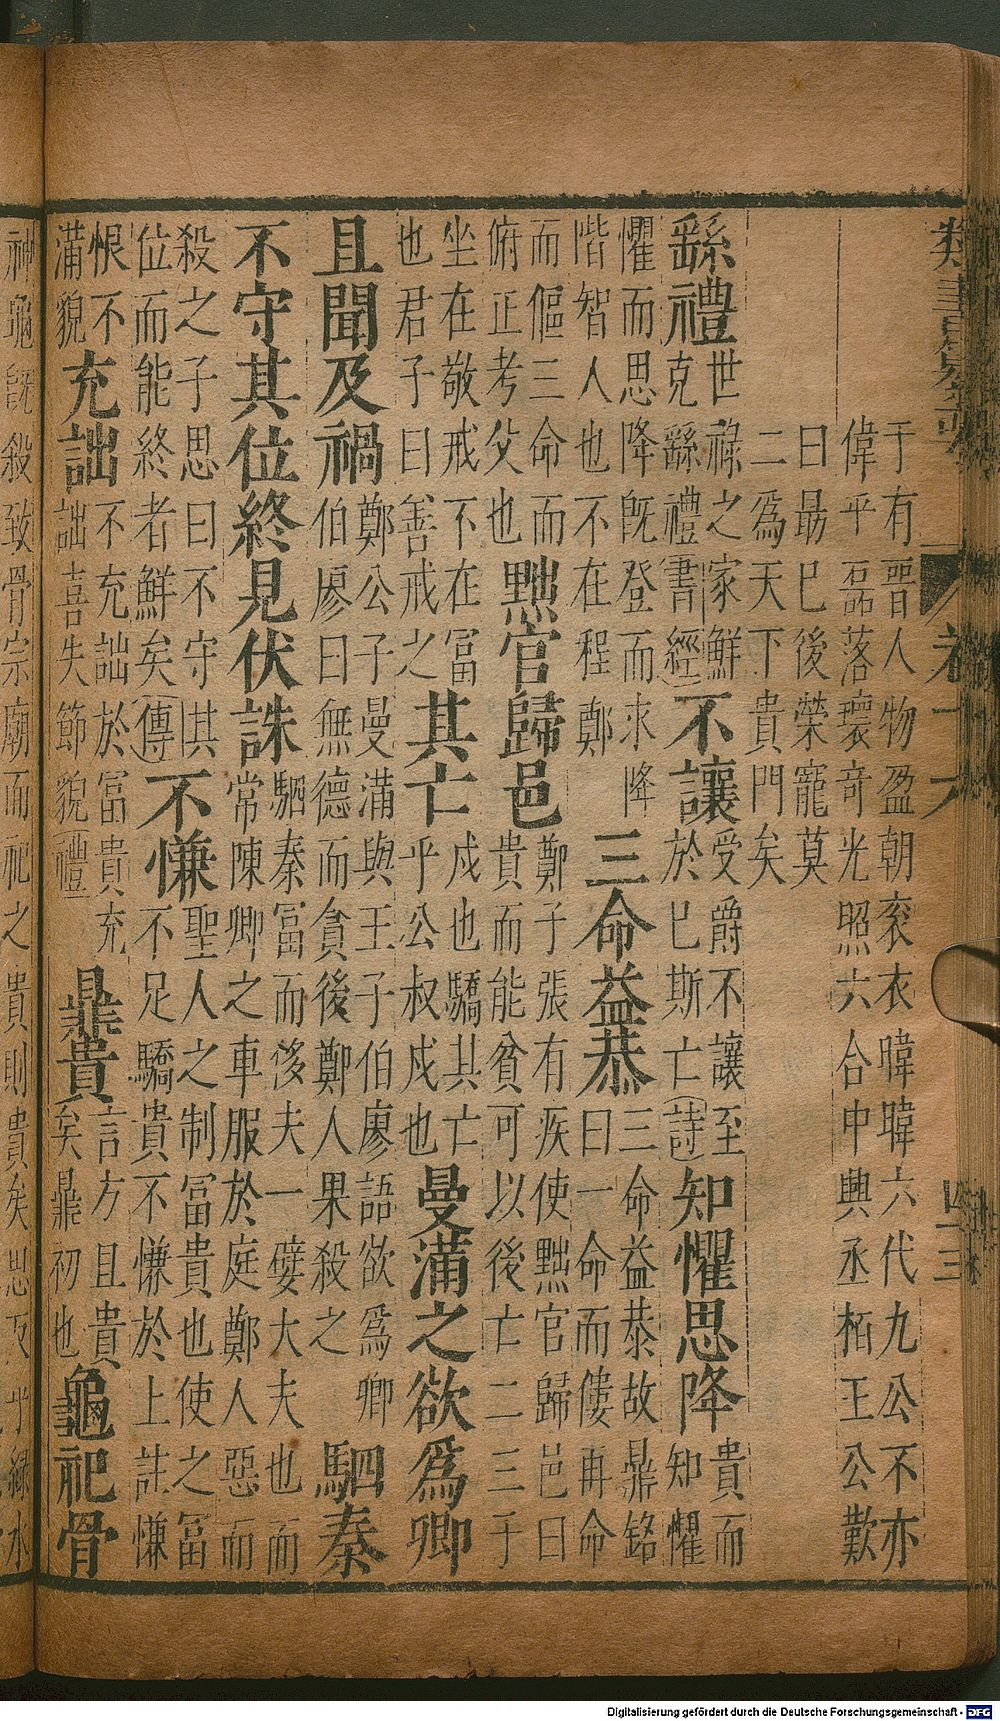 類書
卷十六
四十三
于有晋人物盈朝衮衣暐暐六代九公不亦
偉乎磊落瓌竒光照六合中興丞栢王公歎
曰最已後榮寵莫
二爲天下貴門矣
繇禮
世祿之家鮮
克繇禮書經
不讓
受爵不讓至
於已斯亡詩
知懼思降
貴而
知懼
懼而思降旣登而求降
階智人也不在程鄭
三命益恭
三命益恭故鼎銘
曰一命而僂再命
而傴三命而
俯正考父也
黜官歸邑
鄭子張有疾使黜官歸邑曰
貴而能貧可以後亡二三子
坐在敬戒不在冨
也君子曰善戒之
其亡
戍也驕其亡
乎公叔戍也
曼滿之欲爲卿
且聞及禍
鄭公子曼滿與王子伯廖語欲爲卿
伯廖曰無德而貪後鄭人果殺之
駟秦
不守其位終見伏誅
駟秦冨而侈夫一嬖大夫也而
常陳卿之車服於庭鄭人惡而
殺之子思曰不守其
位而能終者鮮矣傳
不慊
聖人之制冨貴也使之冨
不足驕貴不慊於上註慊
恨不
滿貌
充詘
不充詘於冨貴充
詘喜失節貌禮
鼎貴
言方且貴
矣鼎初也
龜祀骨
神龜旣殺致骨宗廟而祀之貴則貴矣
Digitalisierung gefördert durch die Deutsche Forschungsgemeinschaft - DFG